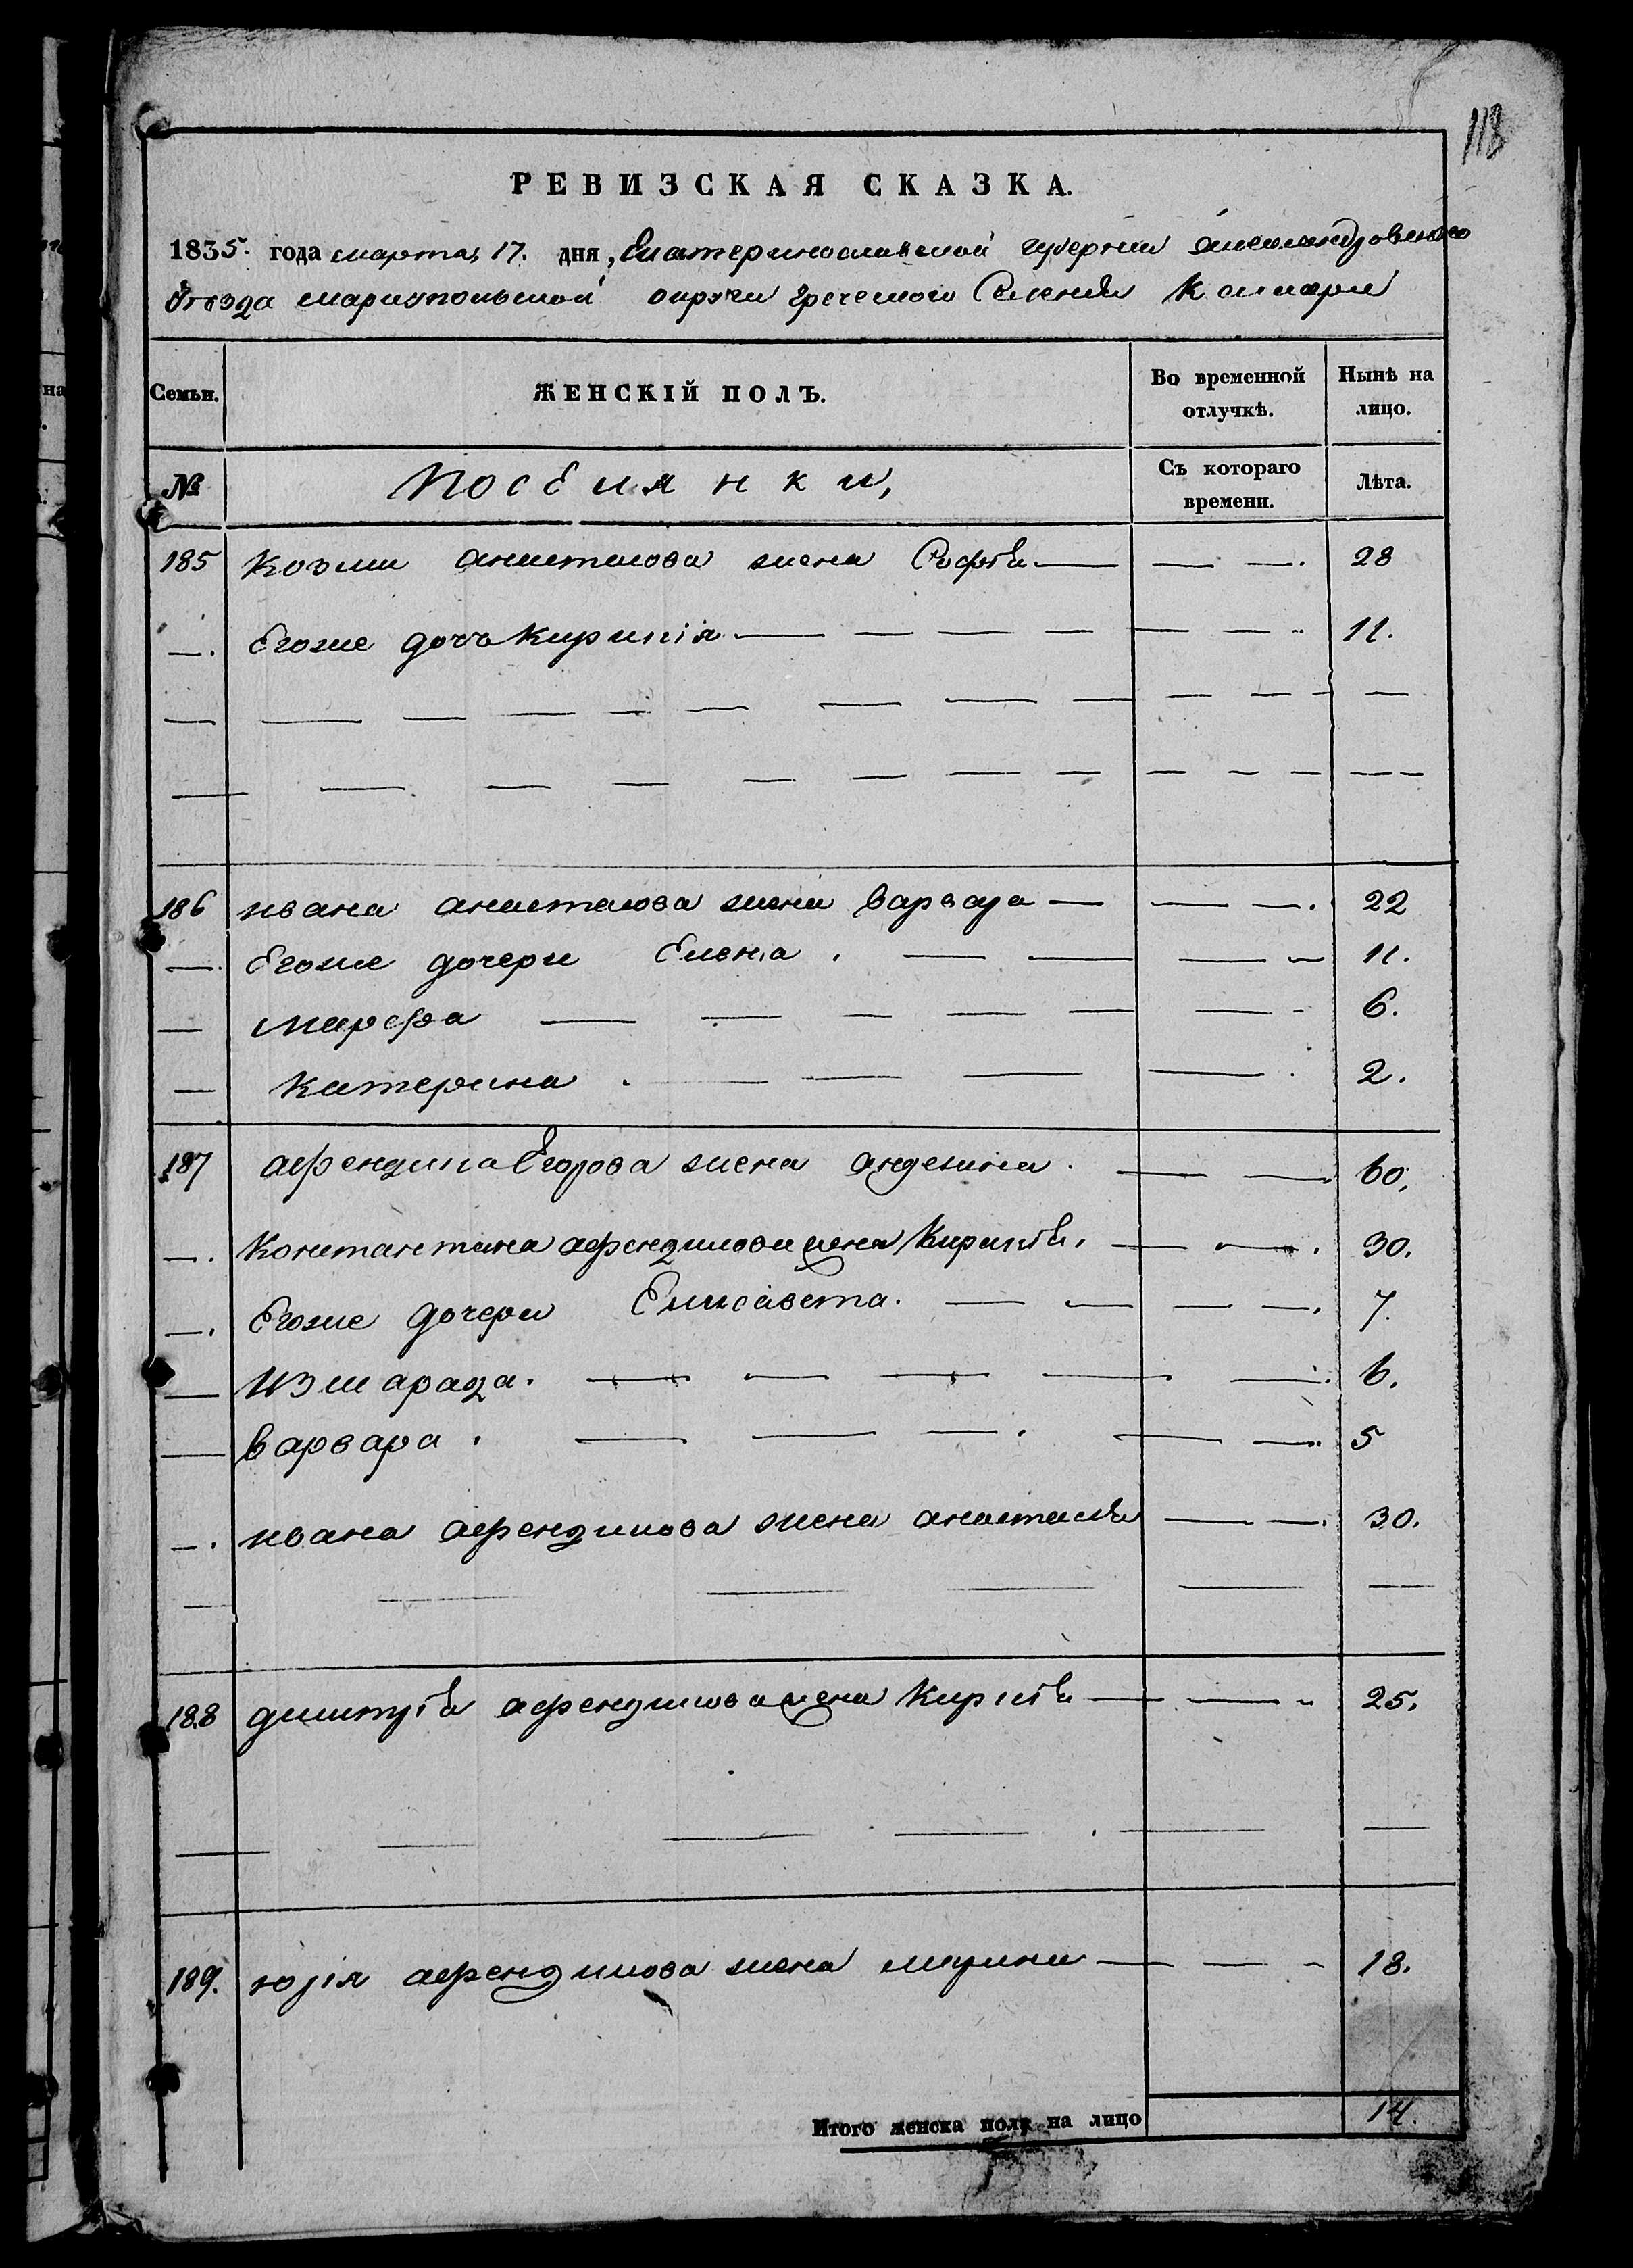 113
РЕВИЗСКАЯ СКАЗКА.
1835. года марта, 17. дня, Екатеринославской губерніи Александровскаго
Уѣзда мариупольской округи греческого Селенія Камари
Семьи. ЖЕНСКІЙ ПОЛЪ. Во временной отлучкѣ. Нынѣ на лицо.
№ Поселянки, Съ котораго времени. Лѣта.
185 козми анастасова жена Софія — — —. 28
—. Егоже дочь Кирикія — — — — — — 11.
186 ивана анастасова жена варвара — — —. 22
—. Егоже дочери Елена. — — — — 11.
— марфа — — — — — — - 6.
— катерина. — — — —. 2.
187 афендика Егорова жена анделина. — —. 60,
—. Константина афендикова жена Кирикія. — —. 30.
—. Егоже дочери Елисавета. — — — —. 7.
— Измарада. — — — — —. 6.
— варвара. — — —. — —. 5
—. ивана афендикова жена анастасія — —. 30.
188 дмитрія афендикова жена Кирикія — — - 25.
189. юрія афендикова жена марина — — - 18.
Итого женска пола на лицо 14.